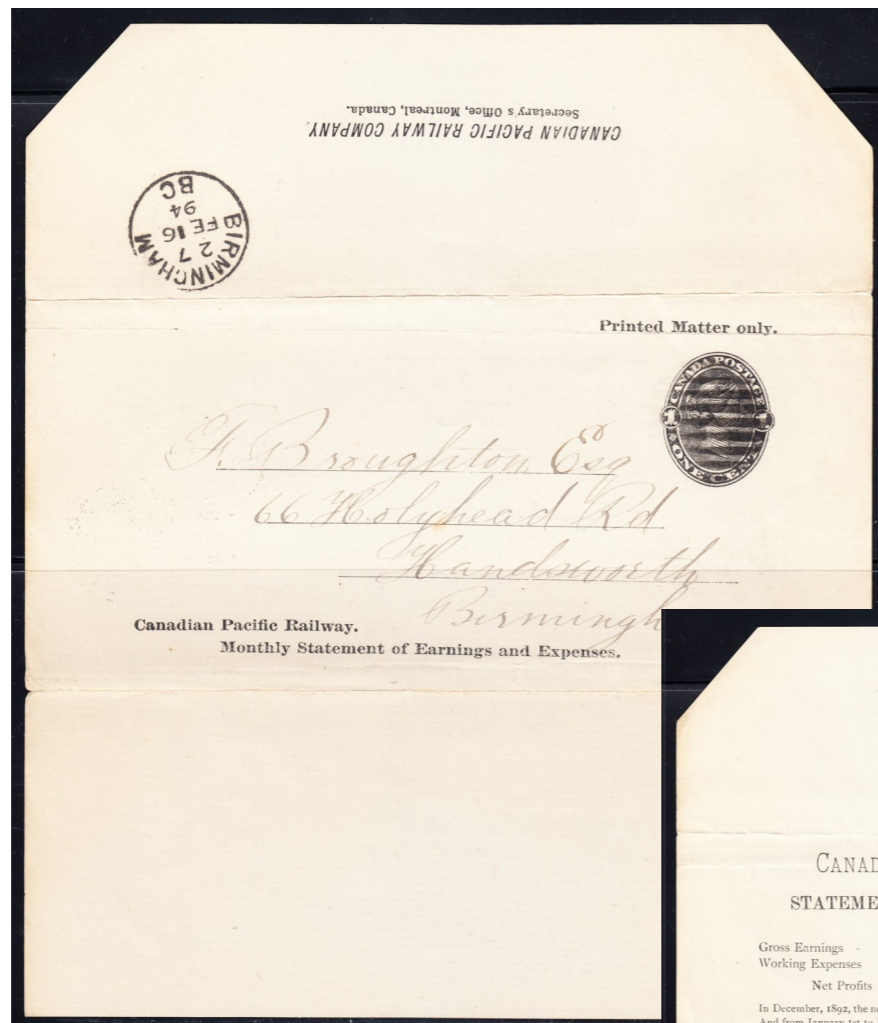 Secretary's Office, Montreal, Canada.
CANADIAN PACIFIC RAILWAY COMPANY.
BIRMINGHAM
2 7
FE 16
94
BC
Printed Matter only.
CANADA POSTAGE
1 1
ONE CENT
F. Broughton Esq
66 Holyhead Rd
Handsworth
Birmingh
Canadian Pacific Railway.
Monthly Statement of Earnings and Expenses.
CANAD
STATEME
Gross Earnings -
Working Expenses
Net Profits
In December, 1892, the n
And from January 1st to